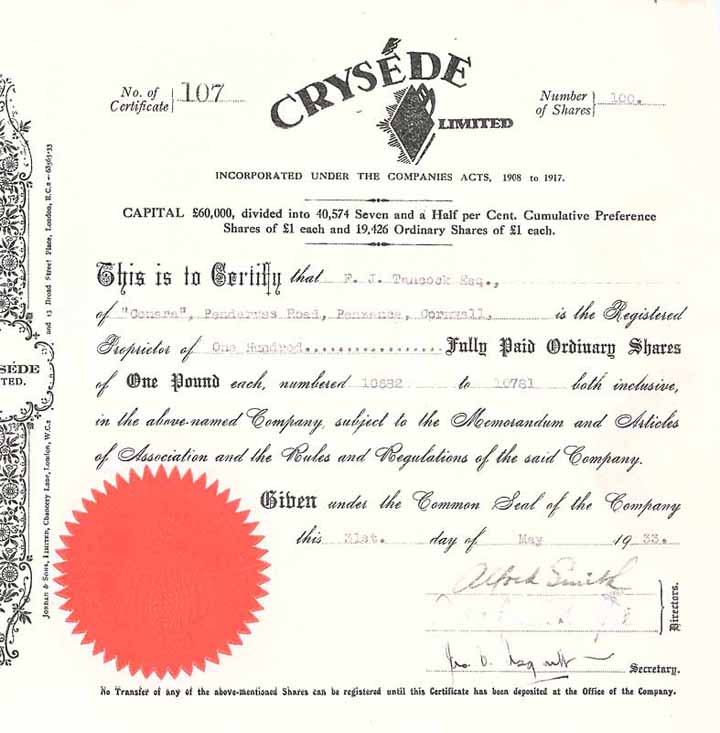 CRYSÉDE
LIMITED
No. of Certificate 107
Number of Shares 100.
INCORPORATED UNDER THE COMPANIES ACTS, 1908 to 1917.
CAPITAL £60,000, divided into 40,574 Seven and a Half per Cent. Cumulative Preference
Shares of £1 each and 19,426 Ordinary Shares of £1 each.
This is to Certify that F. J. Tancock Esq.,
of "Conara", Penderves Road, Penzance, Cornwall, is the Registered
Proprietor of One Hundred................. Fully Paid Ordinary Shares
of One Pound each, numbered 10682 to 10781 both inclusive,
in the above-named Company, subject to the Memorandum and Articles
of Association and the Rules and Regulations of the said Company.
Given under the Common Seal of the Company
this 31st. day of May 1933.
Alfred Smith
Directors.
Secretary.
No Transfer of any of the above-mentioned Shares can be registered until this Certificate has been deposited at the Office of the Company.
SÉDE
TED.
JORDAN & SONS, LIMITED, Chancery Lane, London, W.C.2
and 13 Broad Street Place, London, E.C.2